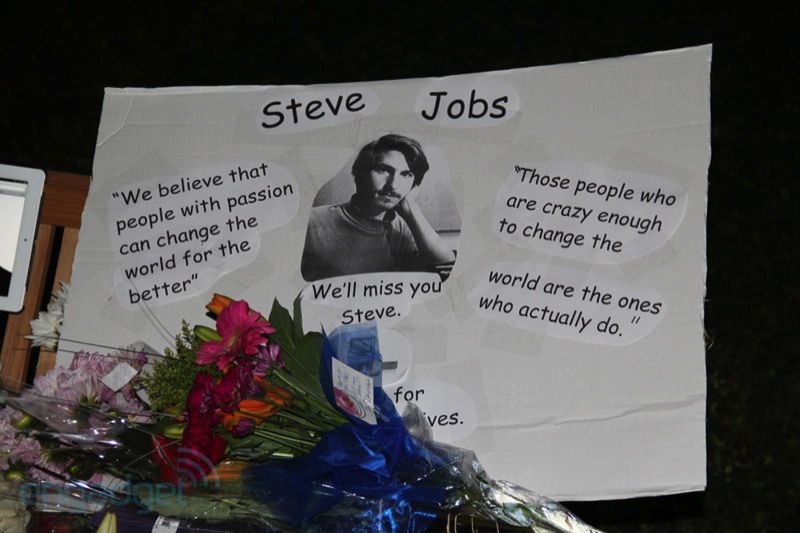 Steve Jobs
"We believe that
people with passion
can change the
world for the
better"
We'll miss you
Steve.
for
"Those people who
are crazy enough
to change the
world are the ones
who actually do."
engadget